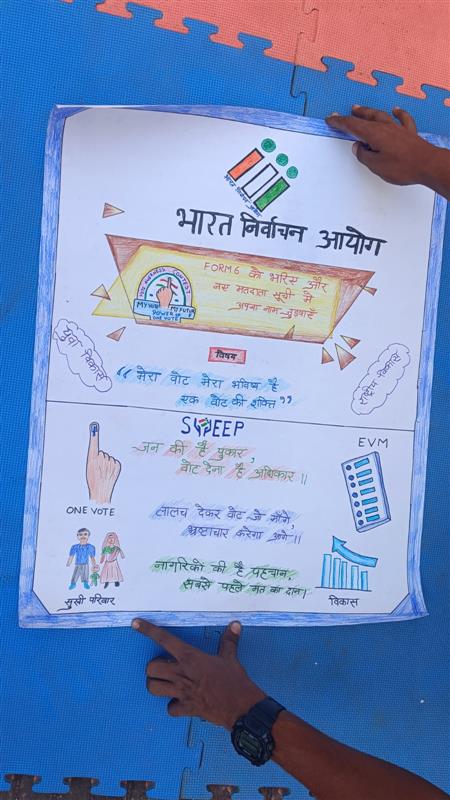 भारत निर्वाचन आयोग
FORM 6 को भरिए और
नए मतदाता सूची मे
अपना नाम जुड़वाएँ
MY VOTE MY FUTURE
POWER OF
ONE VOTE
विषय
युवा विकास
राष्ट्रीय विकास
“ मेरा वोट मेरा भविष्य है
एक वोट की शक्ति ”
SVEEP
जन की है पुकार,
वोट देना है अधिकार ||
EVM
ONE VOTE
लालच देकर वोट जो माँगे,
भ्रष्टाचार करेगा आगे ||
नागरिकों की है पहचान,
सबसे पहले मत का दान |
सुखी परिवार
विकास